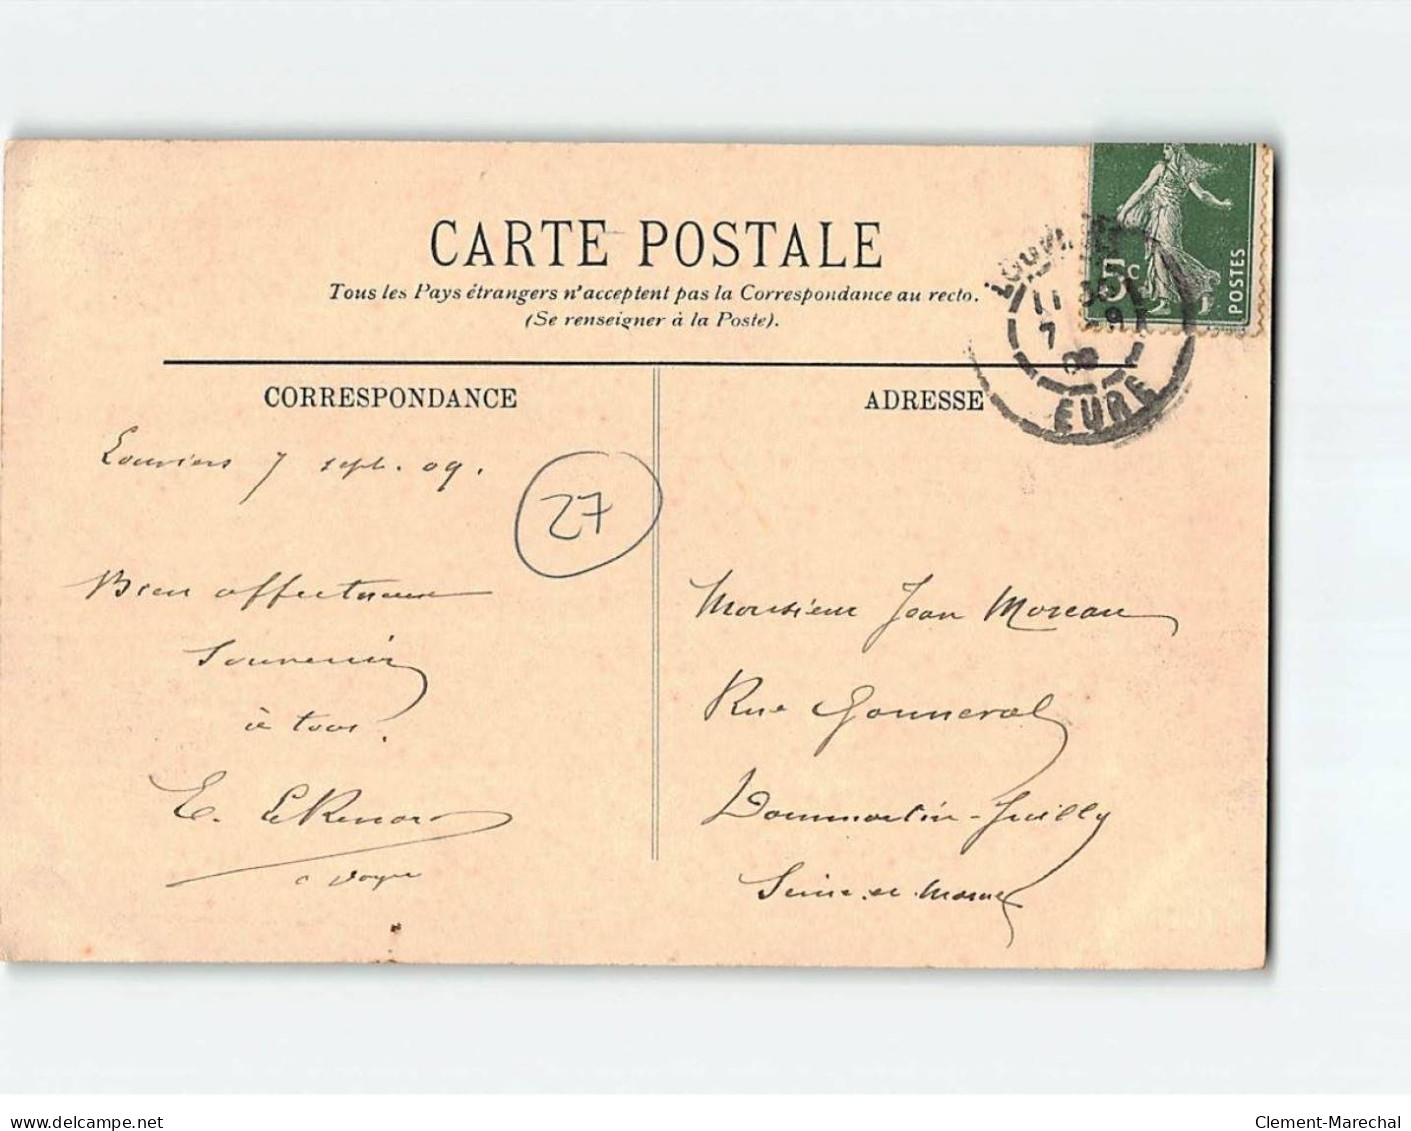 CARTE POSTALE
Tous les Pays étrangers n'acceptent pas la Correspondance au recto.
(Se renseigner à la Poste).
CORRESPONDANCE
Louviers 7 sept. 09.
27
Bien affectueux
Souvenir
à tous.
E. LeRenard
ADRESSE
Monsieur Jean Moreau
Rue Gonneval
Dammartin-Juilly
Seine et Marne
5c
POSTES
LOUVIERS
11
7 - 9
09
EURE
www.delcampe.net
Clement-Marechal